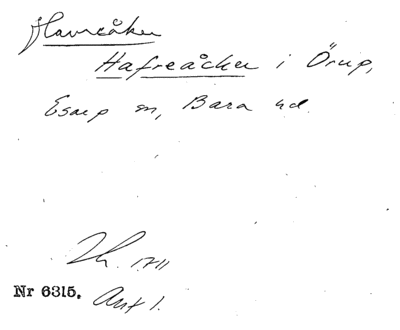 Havreåker
Hafreåcker i Örup,
Esarp sn, Bara hd.
Lh. 1711
Nr 6315. Ant 1.